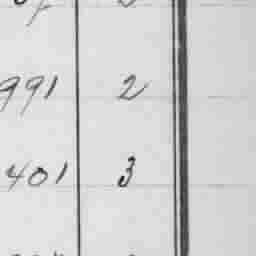 991 2
401 3